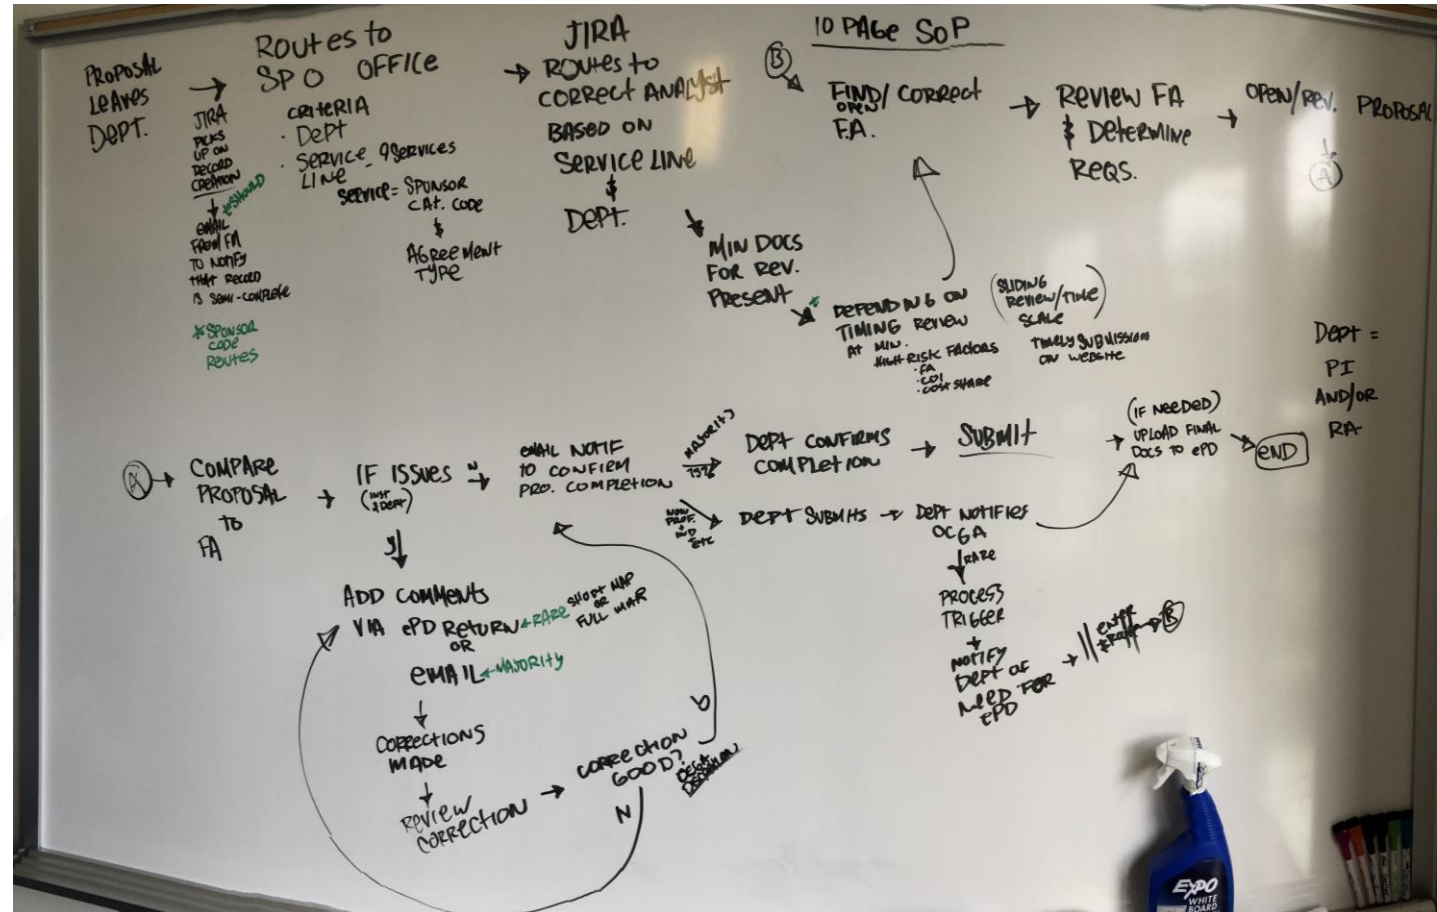 PROPOSAL
LEAVES
DEPT.
ROUTES TO
SPO OFFICE
JIRA
PICKS
UP ON
RECORD
CREATION
*SHOULD
EMAIL
FROM FA
TO NOTIFY
THAT RECORD
IS SEMI-COMPLETE
*SPONSOR
CODE
ROUTES
CRITERIA
· DEPT
· SERVICE - 9 SERVICES
LINE
SERVICE = SPONSOR
CAT. CODE
&
AGREEMENT
TYPE
JIRA
ROUTES TO
CORRECT ANALYST
BASED ON
SERVICE LINE
&
DEPT.
MIN DOCS
FOR REV.
PRESENT
*
DEPENDING ON
TIMING REVIEW
AT MIN.
HIGH RISK FACTORS
· FA
· COI
· COST SHARE
(SLIDING
REVIEW/TIME
SCALE)
TIMELY SUBMISSION
ON WEBSITE
10 PAGE SOP
B
FIND/CORRECT
OPEN
FA.
REVIEW FA
& DETERMINE
REQS.
OPEN/REV. PROPOSAL
A
DEPT =
PI
AND/OR
RA
A
COMPARE
PROPOSAL
TO
FA
IF ISSUES
(INST
& DEPT)
N
Y
EMAIL NOTIF
TO CONFIRM
PRO. COMPLETION
MAJORITY
75%
DEPT CONFIRMS
COMPLETION
SUBMIT
(IF NEEDED)
UPLOAD FINAL
DOCS TO ePD
END
NON
PROF.
+
IND
ETC
DEPT SUBMITS
DEPT NOTIFIES
OCGA
RARE
PROCESS
TRIGGER
NOTIFY
DEPT OF
NEED FOR
ePD
ENTER
& ROUTE
B
ADD COMMENTS
VIA ePD RETURN
OR
EMAIL
RARE
SHORT MAP
OR
FULL MAP
MAJORITY
CORRECTIONS
MADE
REVIEW
CORRECTION
CORRECTION
GOOD?
Y
N
EXPO
WHITE
BOARD